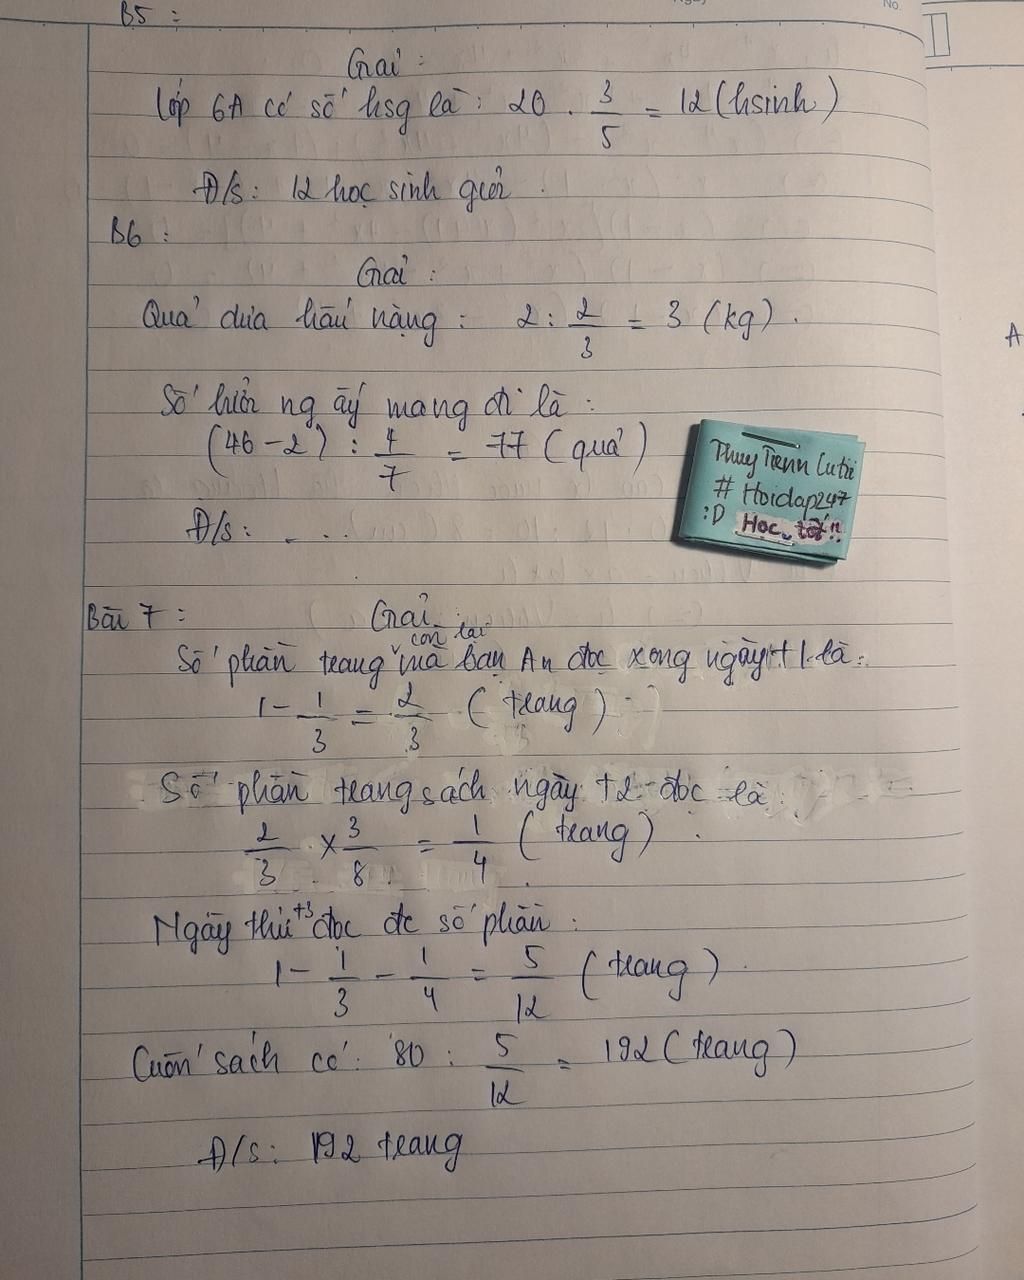 B5 :
No.
Giải :
Lớp 6A có số hsg là : 20 . 3/5 = 12 (hsinh)
Đ/s : 12 học sinh giỏi .
B6 :
Giải :
Quả dưa hấu nặng : 2 : 2/3 = 3 (kg) .
Số trứng ng ấy mang đi là :
(46 - 2) : 4/7 = 77 (quả)
Đ/s : . . .
Thuy Tienn Cutii
# Hoidap247
:D Học tốt!!
Bài 7 : Giải
còn lại
Số phần trang mà bạn An đọc xong ngày t1 là :
1 - 1/3 = 2/3 ( trang )
Số phần trang sách ngày t2 đọc là
2/3 x 3/8 = 1/4 ( trang ) .
Ngày thứ t3 đọc đc số phần :
1 - 1/3 - 1/4 = 5/12 ( trang ) .
Cuốn sách có : 80 : 5/12 = 192 ( trang )
Đ/s : 192 trang